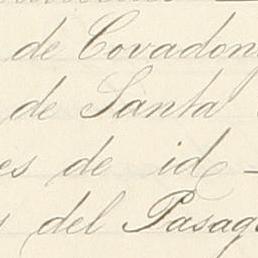 de Covadon
de Santa
es de id
del Pasag